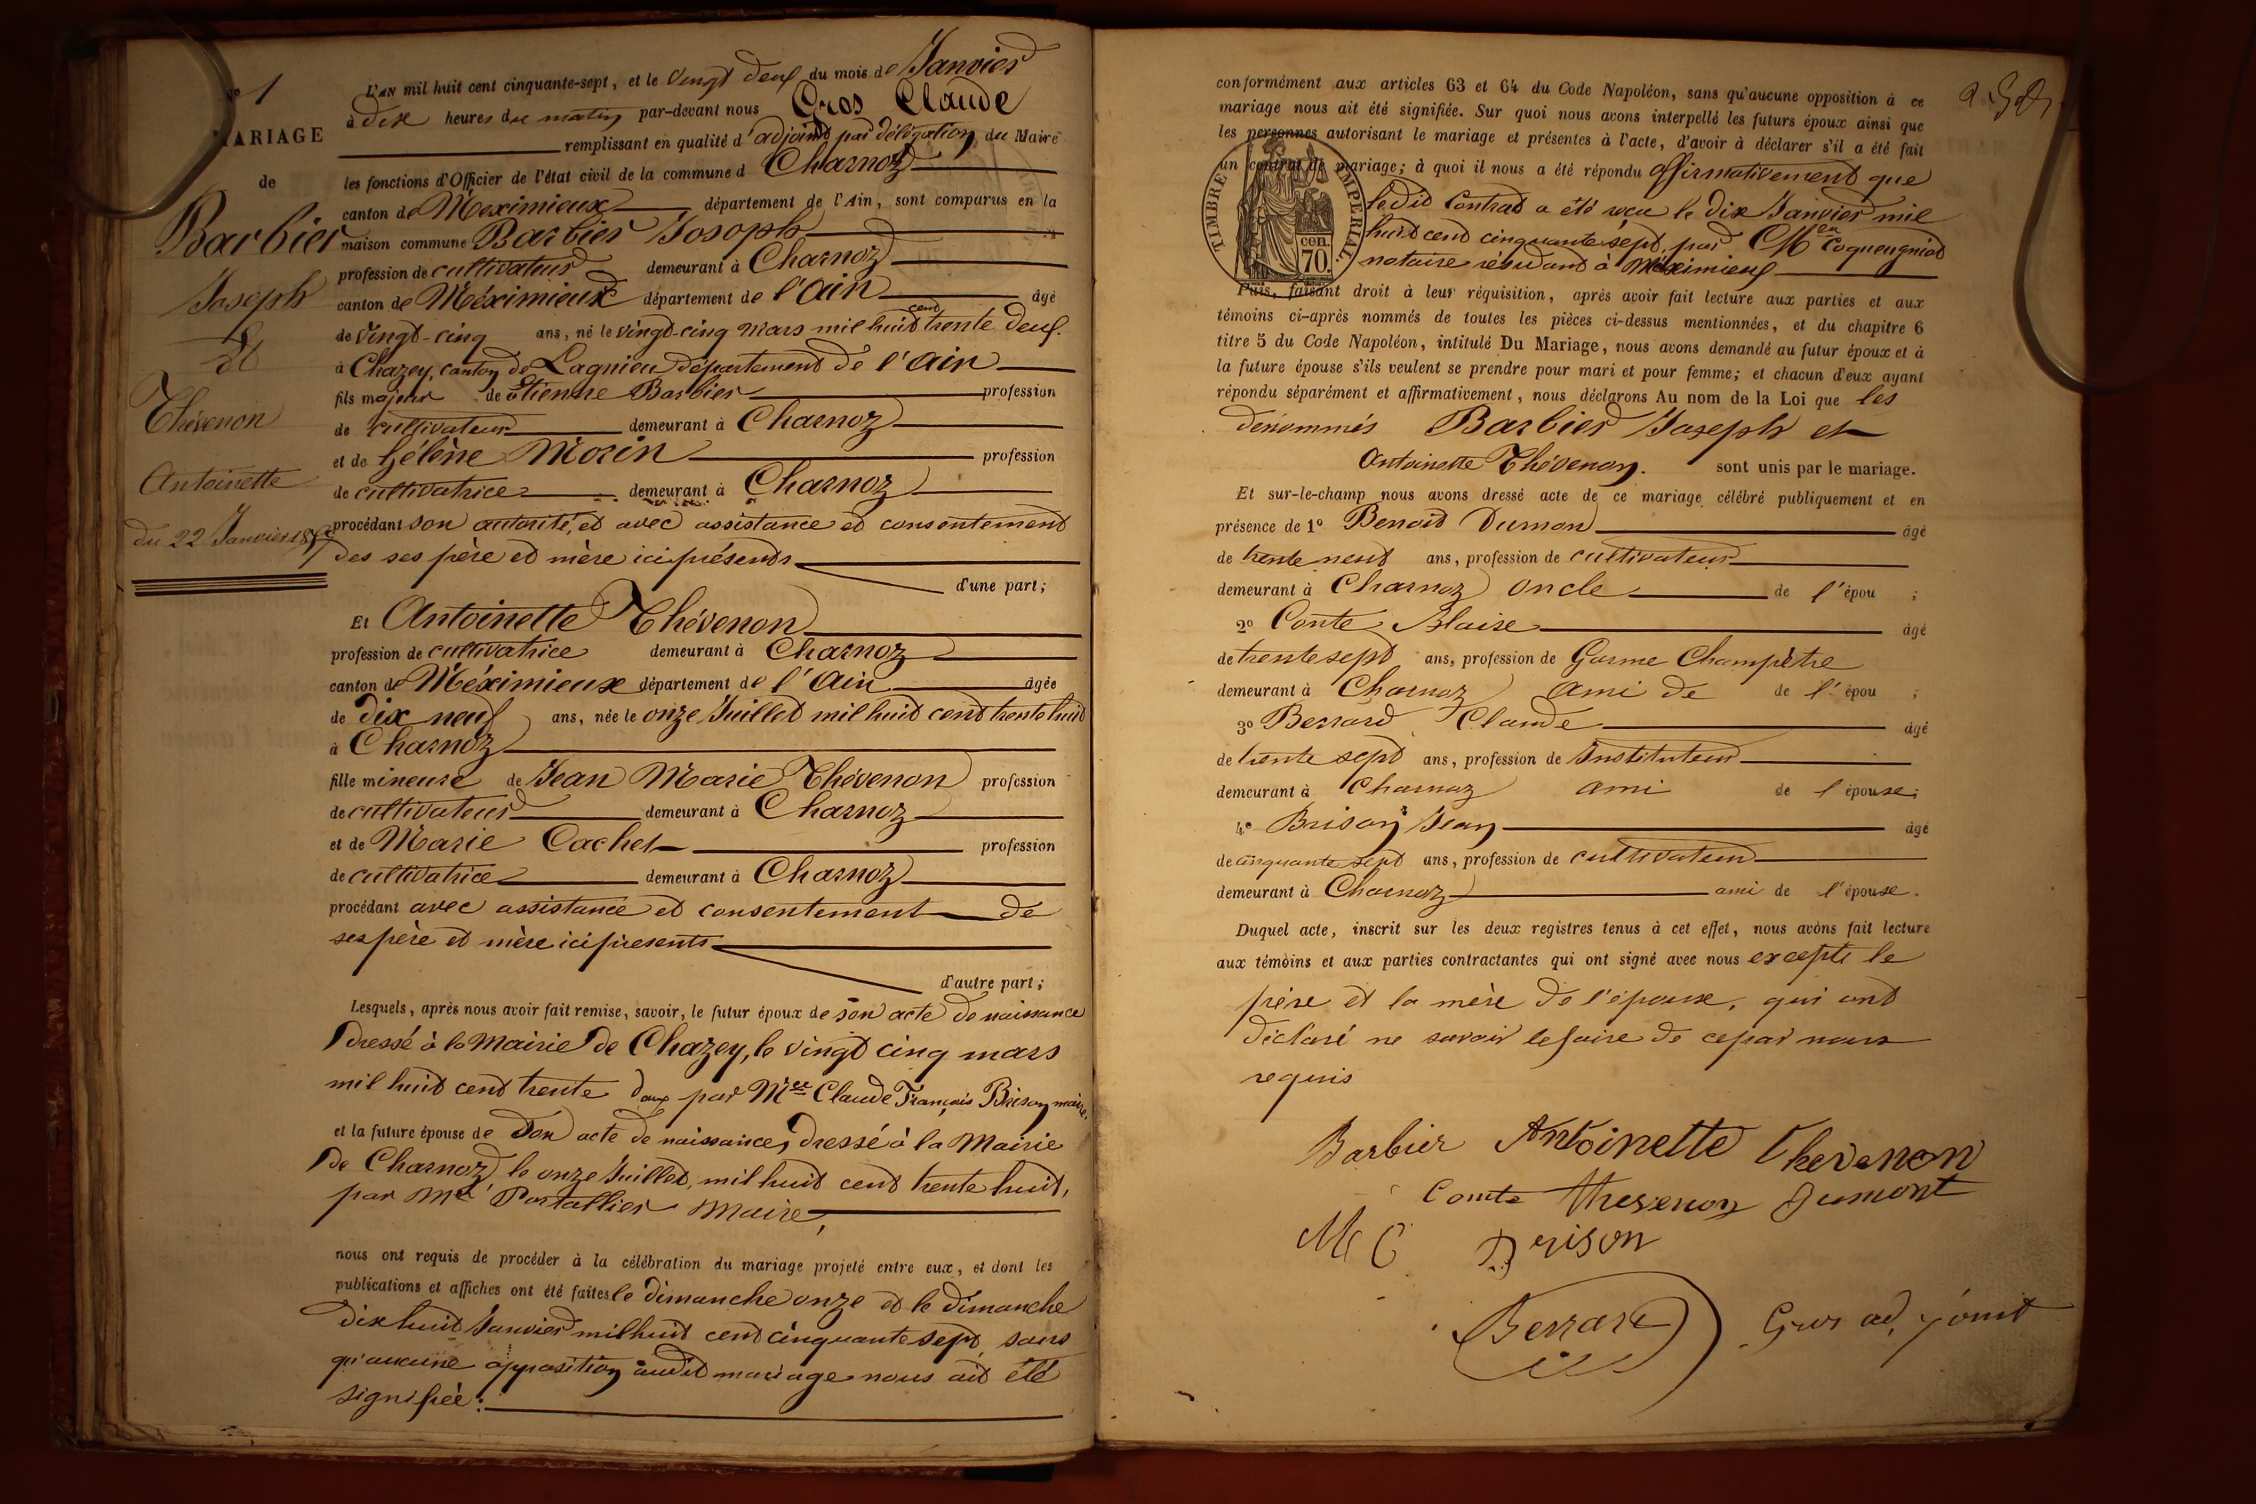 N° 1
MARIAGE
de
Barbier
Joseph
&
Thévenon
Antoinette
du 22 Janvier 1857
L'AN mil huit cent cinquante-sept, et le vingt deux du mois de Janvier
à dix heures du matin par-devant nous Gros Claude
remplissant en qualité d'adjoint par délégation du Maire
les fonctions d'Officier de l'état civil de la commune d Charnoz
canton de Meximieux département de l'Ain, sont comparus en la
maison commune Barbier Joseph
profession de cultivateur demeurant à Charnoz
canton de Méximieux département de l'Ain âgé
de vingt-cinq ans, né le vingt-cinq mars mil huit cent trente deux
à Chazey, canton de Lagnieu département de l'Ain
fils majeur de Etienne Barbier profession
de cultivateur demeurant à Charnoz
et de Hélène Morin profession
de cultivatrice demeurant à Charnoz
procédant son autorité, et avec assistance et consentement
des ses père et mère ici présents
d'une part;
Et Antoinette Thévenon
profession de cultivatrice demeurant à Charnoz
canton de Méximieux département de l'Ain âgée
de dix neuf ans, née le onze Juillet mil huit cent trente huit
à Charnoz
fille mineure de Jean Marie Thévenon profession
de cultivateur demeurant à Charnoz
et de Marie Cachet profession
de cultivatrice demeurant à Charnoz
procédant avec assistance et consentement de
ses père et mère ici présents
d'autre part;
Lesquels, après nous avoir fait remise, savoir, le futur époux de son acte de naissance
dressé à la Mairie de Chazey, le vingt cinq mars
mil huit cent trente deux par Mre Claude François Brison maire,
et la future épouse de son acte de naissance, dressé à la Mairie
de Charnoz, le onze Juillet, mil huit cent trente huit,
par Mre Portallier Maire,
nous ont requis de procéder à la célébration du mariage projeté entre eux, et dont les
publications et affiches ont été faites le dimanche onze et le dimanche
dix huit Janvier mil huit cent cinquante sept, sans
qu'aucune opposition audit mariage nous ait été
signifiée:
conformément aux articles 63 et 64 du Code Napoléon, sans qu'aucune opposition à ce
mariage nous ait été signifiée. Sur quoi nous avons interpellé les futurs époux ainsi que
les personnes autorisant le mariage et présentes à l'acte, d'avoir à déclarer s'il a été fait
un contrat de mariage; à quoi il nous a été répondu affirmativement que
ledit Contrat a été reçu le dix Janvier mil
huit cent cinquante sept, par Me Coqueugniot
notaire résidant à Méximieux
TIMBRE IMPERIAL
cen.
70.
Puis, faisant droit à leur réquisition, après avoir fait lecture aux parties et aux
témoins ci-après nommés de toutes les pièces ci-dessus mentionnées, et du chapitre 6
titre 5 du Code Napoléon, intitulé Du Mariage, nous avons demandé au futur époux et à
la future épouse s'ils veulent se prendre pour mari et pour femme; et chacun d'eux ayant
répondu séparément et affirmativement, nous déclarons Au nom de la Loi que les
dénommés Barbier Joseph et
Antoinette Thévenon. sont unis par le mariage.
Et sur-le-champ nous avons dressé acte de ce mariage célébré publiquement et en
présence de 1° Benoit Dumont âgé
de trente neuf ans, profession de cultivateur
demeurant à Charnoz oncle de l'épou ;
2° Conte Blaise âgé
de trente sept ans, profession de Garme Champètre
demeurant à Charnoz ami de de l'épou ;
3° Berrard Claude âgé
de trente sept ans, profession de Instituteur
demeurant à Charnoz ami de l'épouse;
4° Brison Jean âgé
de cinquante sept ans, profession de cultivateur
demeurant à Charnoz ami de l'épouse.
Duquel acte, inscrit sur les deux registres tenus à cet effet, nous avons fait lecture
aux témoins et aux parties contractantes qui ont signé avec nous excepté le
père et la mère de l'épouse, qui ont
déclaré ne savoir le faire de ce par nous
requis
Barbier Antoinette Thevenon
Comte thevenon Dumont
M C Brison
Berrard Gros adjoint